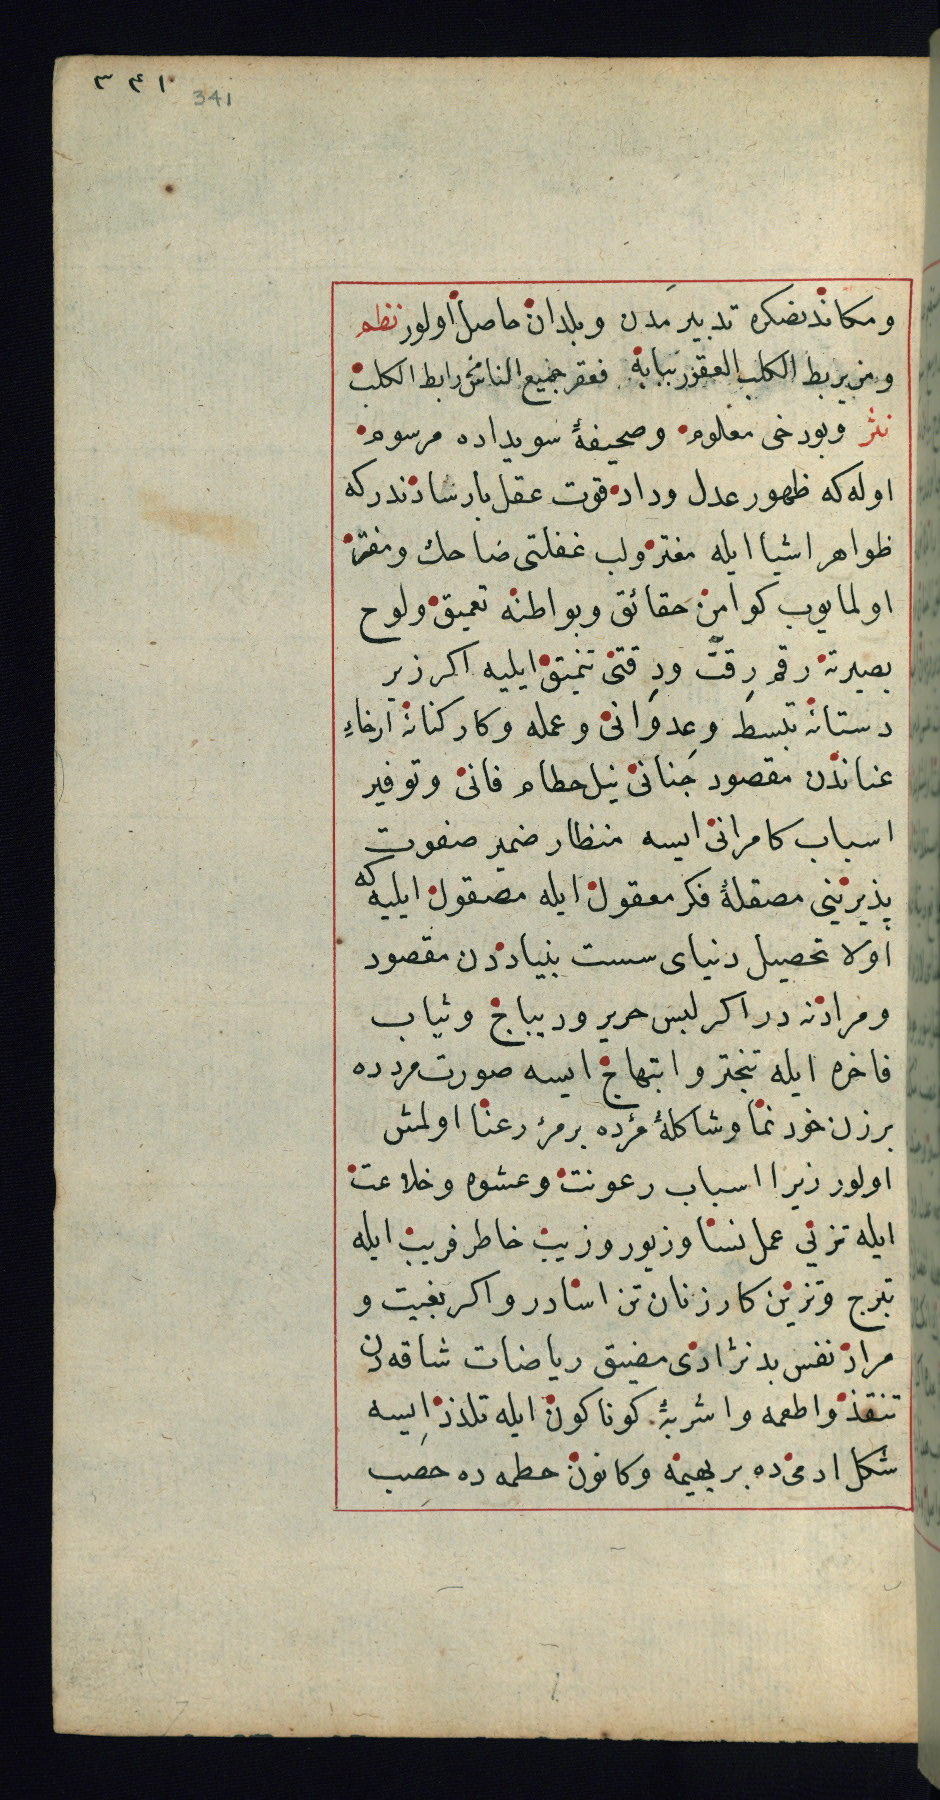 ٣٤١ 341
و مكاندنصكره تدبير مدن و بلدان حاصل اولور نظم
ومن يربط الكلب العقور ببابه فعقر جميع الناس من رابط الكلب
نثر وبو دخی معلوم و صحيفهٔ سويداده مرسوم
اوله كه ظهور عدل وداد قوت عقل بارشادندر كه
ظواهر اشيا ايله مغتر ولب غفلتی ضاحك ومفتر
اولمايوب كوامن حقائق وبواطنه تعميق ولوح
بصيرته رقم رقت ودقتی تنميق ايليه اكر زير
دستانه تبسط وعدوانی و عمله وكاركنانه ارخاء
عناندن مقصود جنانی نيل حطام فانی وتوفير
اسباب كامرانی ايسه منظار ضمير صفوت
پذيرينی مصقلهٔ فكر معقول ايله مصقول ايليه كه
اولا تحصيل دنيای سست بنياددن مقصود
ومراد نه در اكر لبس حرير وديباج وثياب
فاخره ايله تبختر وابتهاج ايسه صورت مردده
بر زن خودنما وشاكلهٔ مرءده بر مرءهٔ رعنا اولمش
اولور زيرا اسباب رعونت وعشوه وخلاعت
ايله تزنی عمل نسا وزيور وزيب خاطر فريب ايله
تبرج وتزين كار زنان تن اسادر واكر بغيت و
مراد نفس بدنژادی مضيق رياضات شاقه دن
تنقذ واطعمه واشربهٔ كوناكون ايله تلذذ ايسه
شكل ادمی ده بر بهيمه وكانون حطمه ده حصب